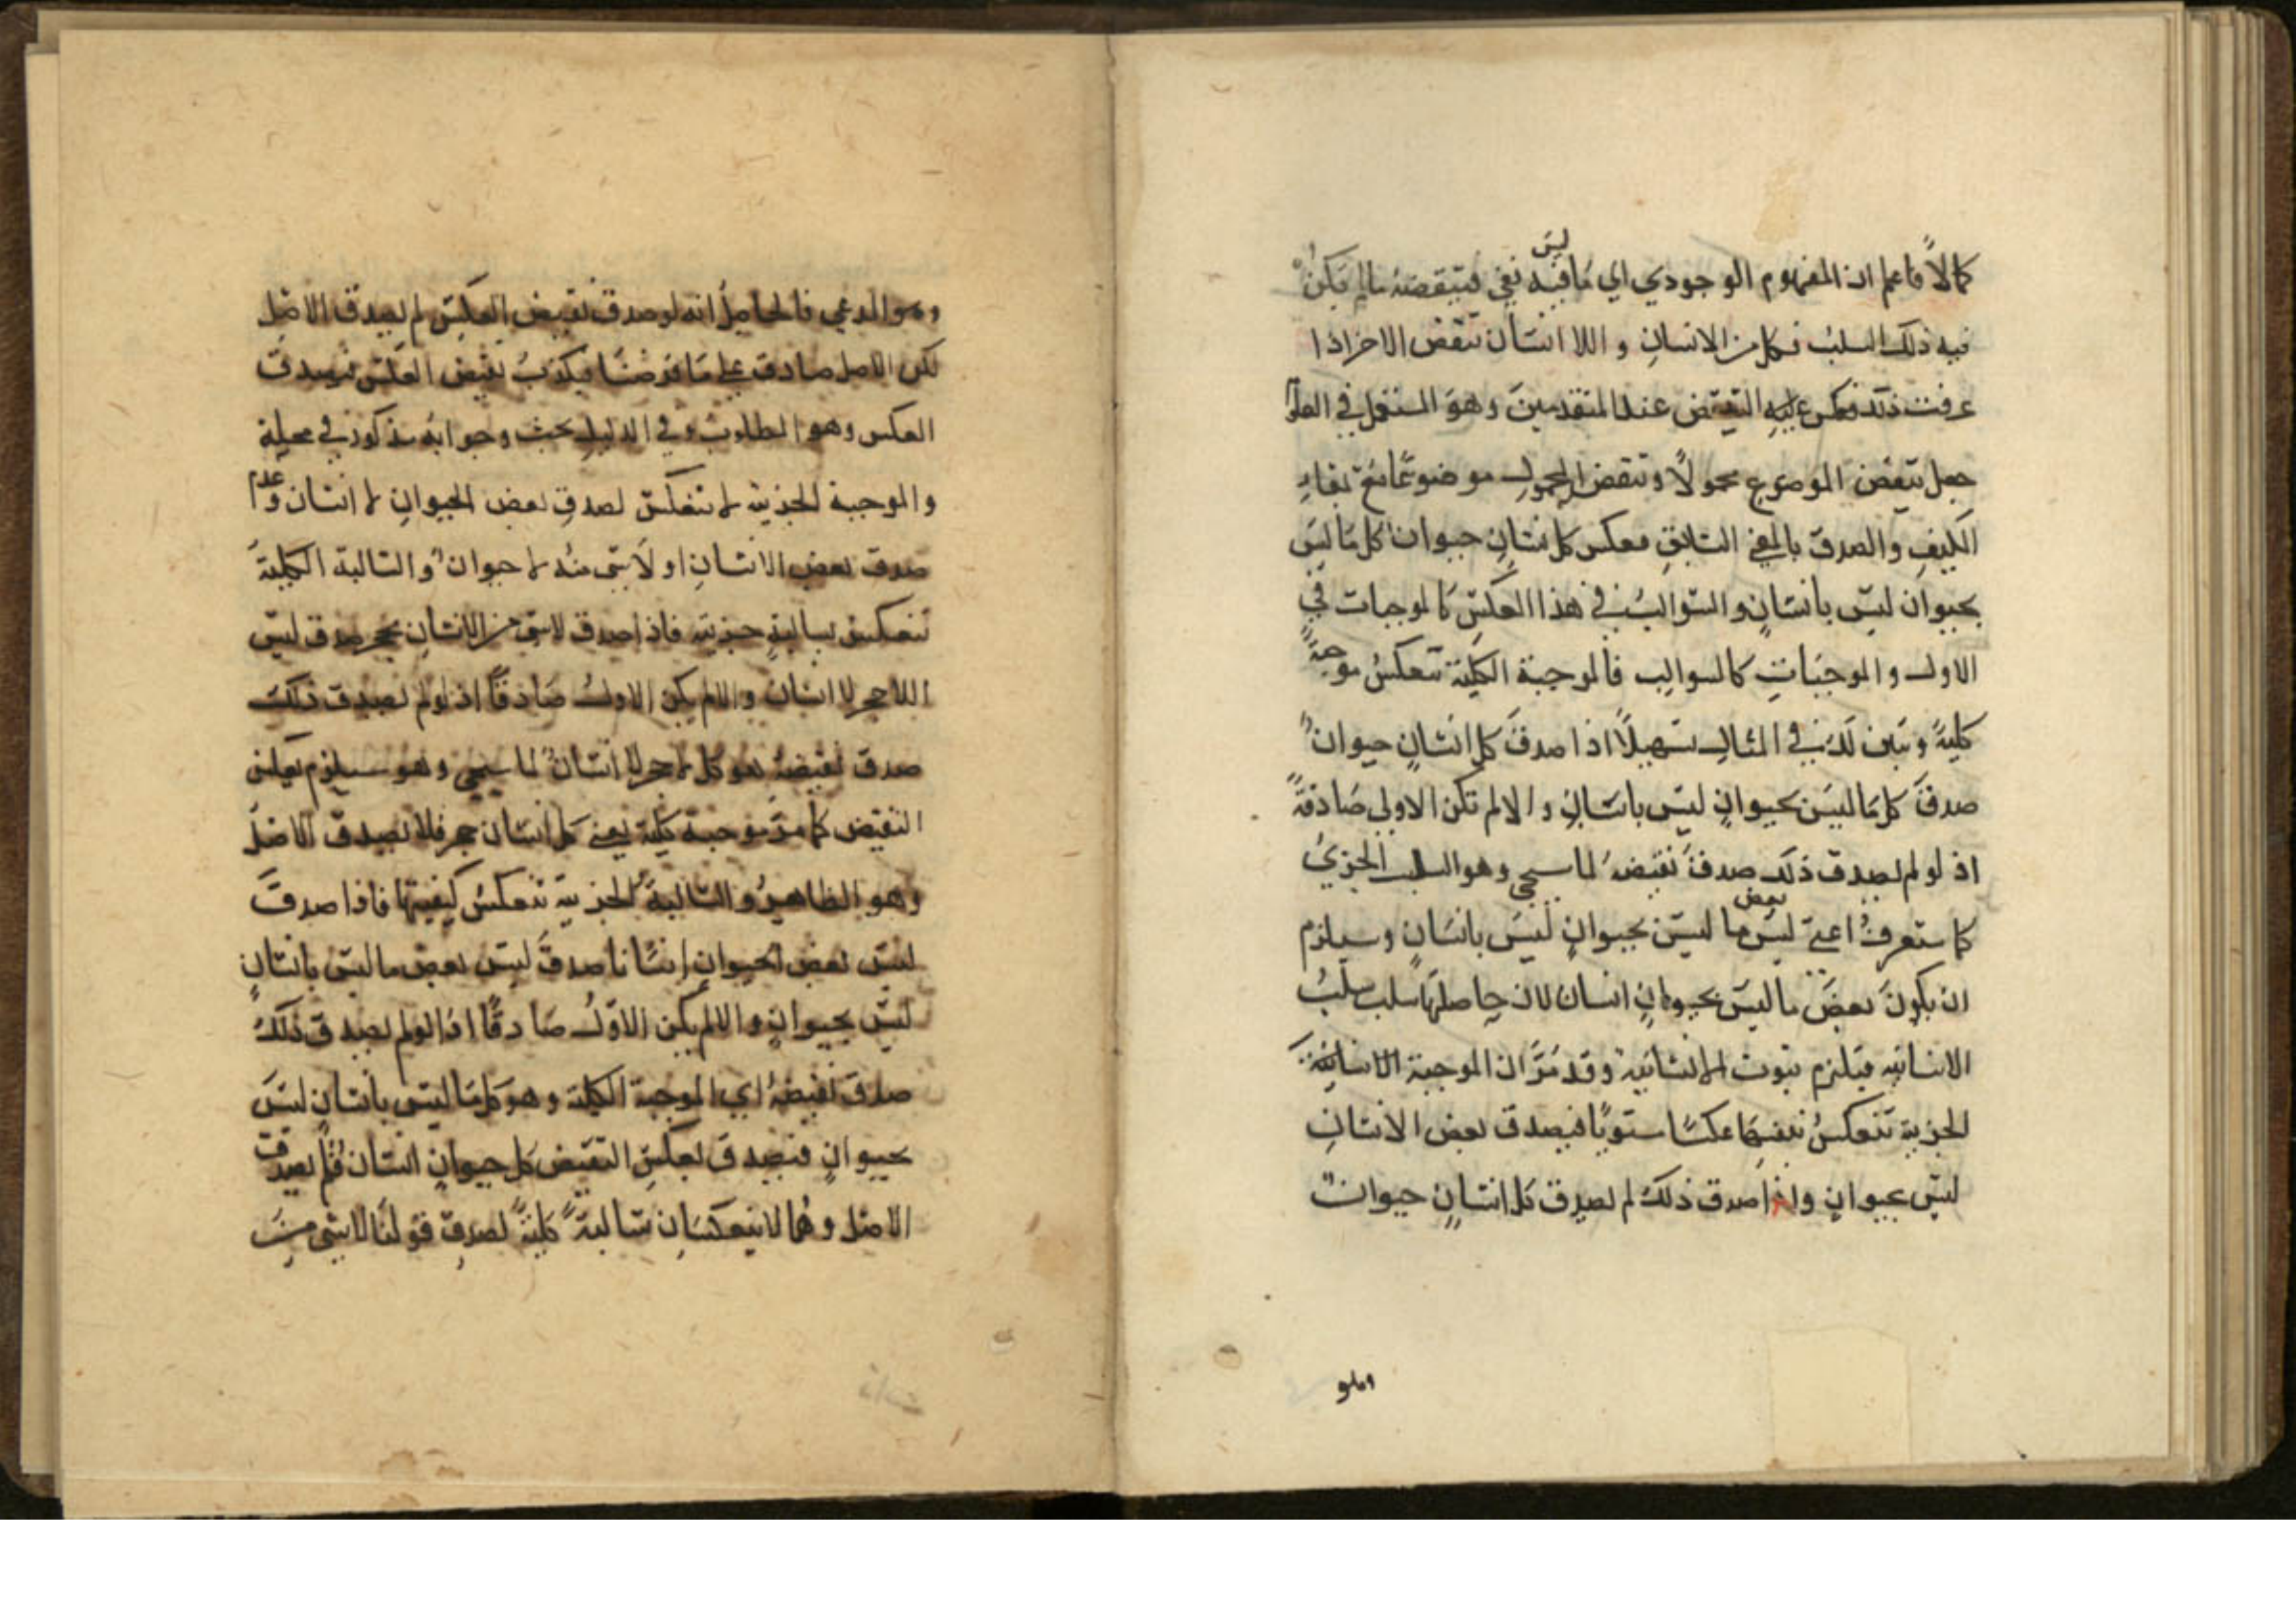 كمالاً فاعلم ان المفهوم الوجودي اي ما ليس فيه نفي فنقيضه ما لم يكن
فيه ذلك السلب فكل من الانسان و اللا انسان نقيض الاخر اذا
عرفت ذلك فعكس النقيض عند المتقدمين وهو المستعمل في العلوم
جعل نقيض الموضوع محمولاً ونقيض المحمول موضوعًا مع بقاء
الكيف والصدق بالمعنى السابق فعكس كل انسان حيوان كل ما ليس
بحيوان ليس بانسان والسوالب في هذا العكس كالموجبات في
الاول والموجبات كالسوالب فالموجبة الكلية تنعكس موجبة
كلية ونبين لك في المثال تسهيلاً اذا صدق كل انسان حيوان
صدق كل ما ليس بحيوان ليس بانسان و الا لم تكن الاولى صادقة
اذ لو لم يصدق ذلك صدق نقيضه لما سيجي وهو السلب الجزئي
كما ستعرف اعني ليس بعض ما ليس بحيوان ليس بانسان وسيلزم
ان يكون بعض ما ليس بحيوان انسان لان حاصلها سلب سلب
الانسانيه فيلزم ثبوت الانسانية وقد مر ان الموجبة
الجزية تنعكس نفسها عكسا مستويًا فيصدق بعض الانسان
ليس بحيوان واذا صدق ذلك لم يصدق كل انسان حيوان
وهو المدعي فالحاصل انه لو صدق نقيض العكس لم يصدق الاصل
لكن الاصل صادق على ما فرضنا فيكذب نقيض العكس فيصدق
العكس وهو المطلوب وفي الدليل بحث وجوابه مذكور في محله
والموجبة الجزية لا تنعكس لصدق بعض الحيوان لا انسان وعدم
صدق بعض الانسان لا حيوان والسالبة الكلية
تنعكس بسالبة جزية فاذا صدق لا شي من الانسان بحجر صدق ليس
اللا حجر لا انسان والا لم يكن الاول صادقًا اذ لو لم يصدق ذلك
صدق نقيضه هو كل لا حجر لا انسان لما سيجي وهو سيلزم بعكس
النقيض كما مر موجبة كلية يعني كل انسان حجر فلا يصدق الاصل
وهو الظاهر والسالبة الجزية تنعكس كيفيتها فاذا صدق
ليس بعض الحيوان انسانا صدق ليس بعض ما ليس بانسان
ليس بحيوان والا لم يكن الاول صادقًا اذ لو لم يصدق ذلك
صدق نقيضه اي الموجبة الكلية وهو كل ما ليس بانسان ليس
بحيوان فيصدق بعكس النقيض كل حيوان انسان فلم يصدق
الاصل وهما لا ينعكسان سالبة كلية لصدق قولنا لا شي من